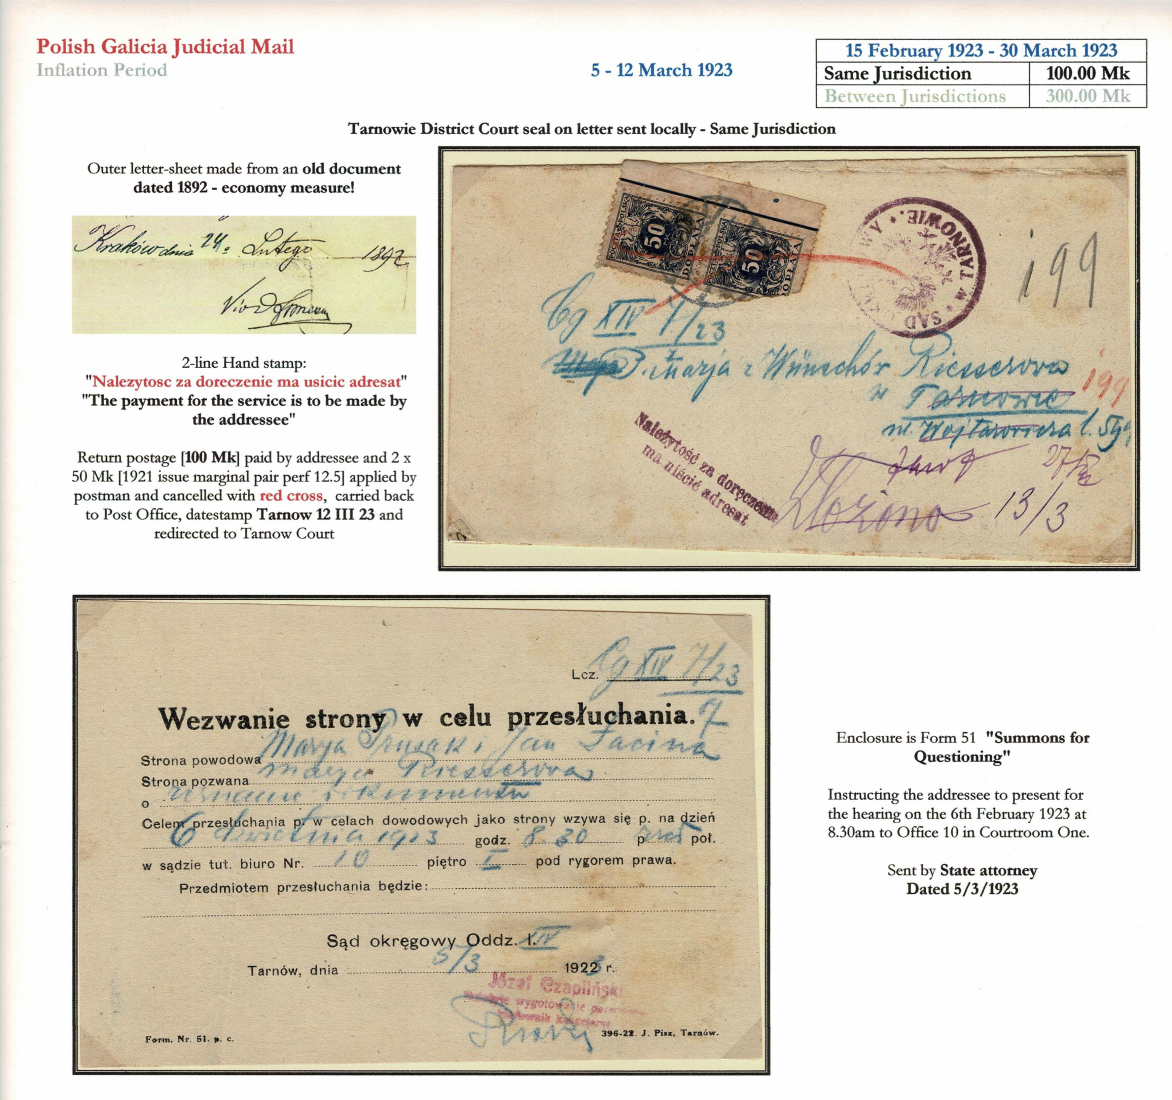 Polish Galicia Judicial Mail
Inflation Period
5 - 12 March 1923
15 February 1923 - 30 March 1923
Same Jurisdiction 100.00 Mk
Between Jurisdictions 300.00 Mk
Tarnowie District Court seal on letter sent locally - Same Jurisdiction
Outer letter-sheet made from an old document
dated 1892 - economy measure!
Kraków dnia 24. Lutego 1892
2-line Hand stamp:
"Nalezytosc za doreczenie ma usicic adresat"
"The payment for the service is to be made by
the addressee"
Return postage [100 Mk] paid by addressee and 2 x
50 Mk [1921 issue marginal pair perf 12.5] applied by
postman and cancelled with red cross, carried back
to Post Office, datestamp Tarnow 12 III 23 and
redirected to Tarnow Court
50 DOPŁATA
50 DOPŁATA
SĄD W TARNOWIE
199
Cg XIV 7/23
P. Marja z Wünschów Riesserova
199
w Tarnowie
Należytość za doręczenie
ma uiścić adresat
Złożono 13/3
Lcz. Cg XIV 7/23
7
Wezwanie strony w celu przesłuchania.
Strona powodowa Marya Prusak i Jan Łacina
Strona pozwana Marya Riesserova
o uznanie
Celem przesłuchania p. w celach dowodowych jako strony wzywa się p. na dzień
6 kwietnia 1923 godz. 8.30 przed poł.
w sądzie tut. biuro Nr. 10 piętro I pod rygorem prawa.
Przedmiotem przesłuchania będzie:
Sąd okręgowy Oddz. I. XIV
Tarnów, dnia 5/3 1923 r.
Józef Czapliński
Form. Nr. 51. p. c.
396-22. J. Pisz, Tarnów.
Enclosure is Form 51 "Summons for
Questioning"
Instructing the addressee to present for
the hearing on the 6th February 1923 at
8.30am to Office 10 in Courtroom One.
Sent by State attorney
Dated 5/3/1923